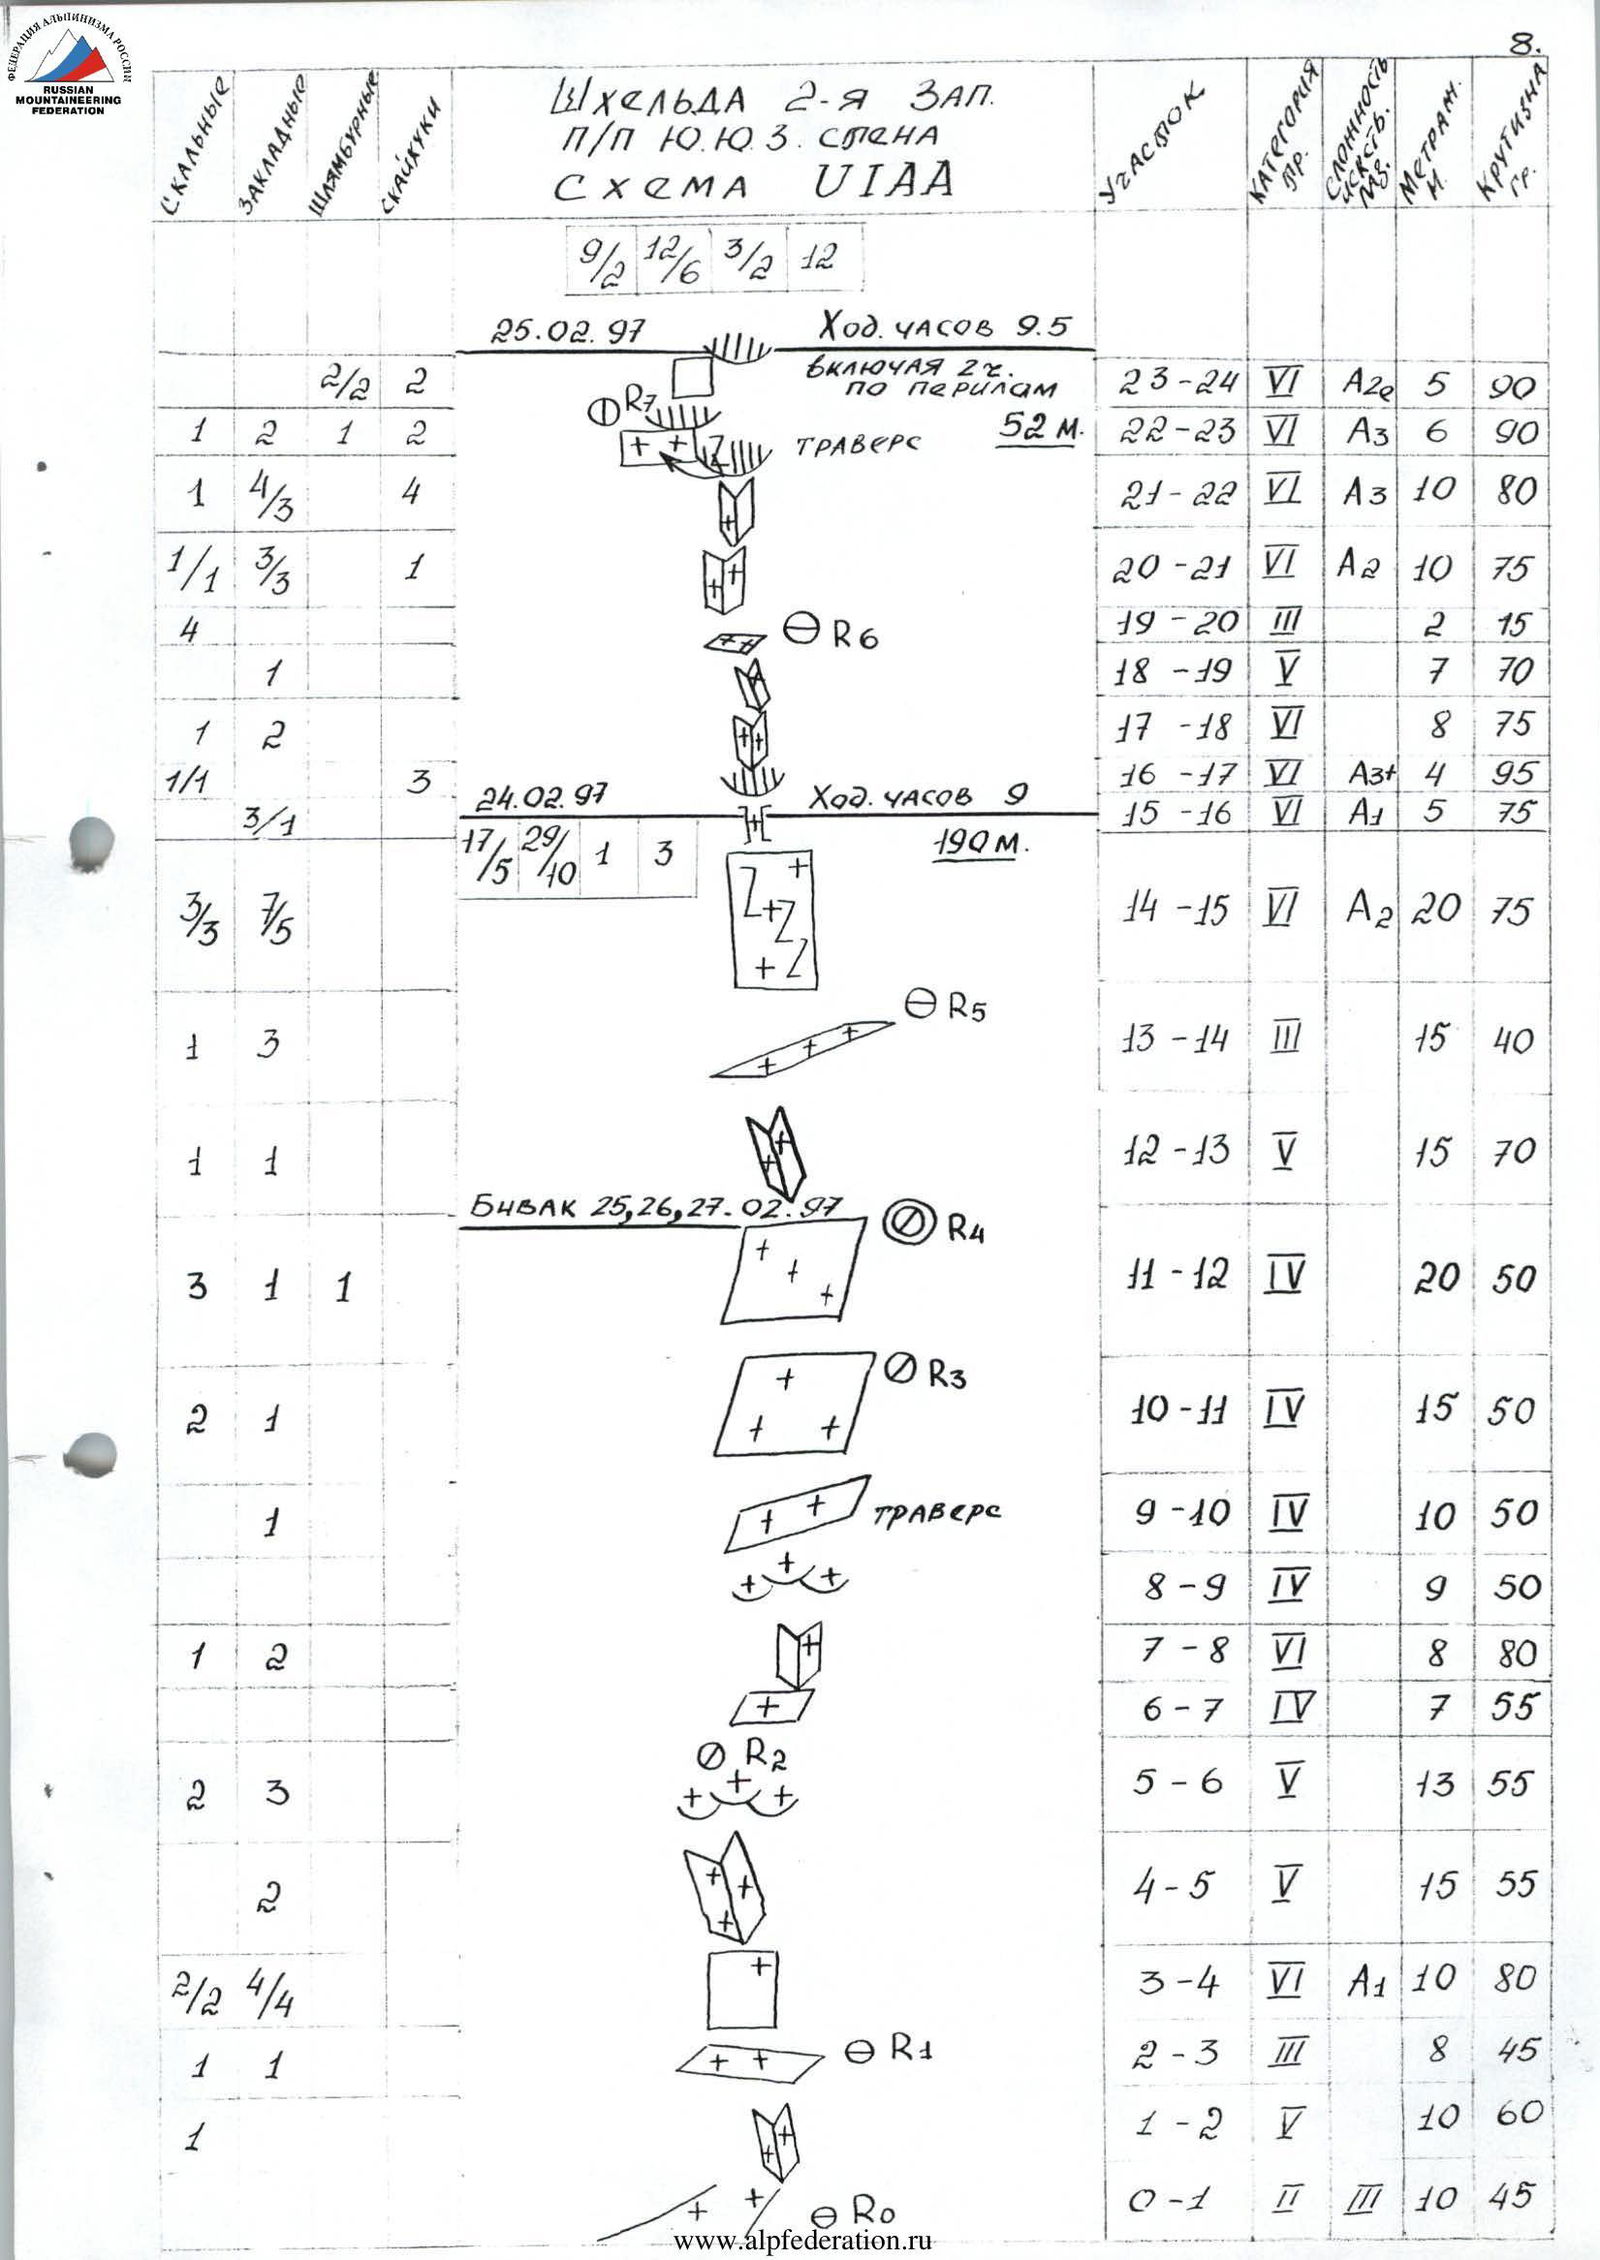 8.
ФЕДЕРАЦИЯ АЛЬПИНИЗМА РОССИИ
RUSSIAN
MOUNTAINEERING
FEDERATION
СКАЛЬНЫЕ ЗАКЛАДНЫЕ ШЛЯМБУРНЫЕ СКАЙХУКИ
ШХЕЛЬДА 2-Я ЗАП.
П/П Ю.Ю.З. СТЕНА
СХЕМА UIAA
УЧАСТОК КАТЕГОРИЯ ТР. СЛОЖНОСТЬ ИСКСТВ. МЕТРАЖ. М. КРУТИЗНА ГР.
9/2 12/6 3/2 12
25.02.97 ХОД. ЧАСОВ 9.5
ВКЛЮЧАЯ 2 Ч.
ПО ПЕРИЛАМ
2/2 2 23-24 VI A2e 5 90
R7
1 2 1 2 ТРАВЕРС 52 М. 22-23 VI A3 6 90
1 4/3 4 21-22 VI A3 10 80
1/1 3/3 1 20-21 VI A2 10 75
4 R6 19-20 III 2 15
1 18-19 V 7 70
1 2 17-18 VI 8 75
1/1 3 16-17 VI A3+ 4 95
24.02.97 ХОД. ЧАСОВ 9
3/1 15-16 VI A1 5 75
17/5 29/10 1 3 190 М.
3/3 7/5 14-15 VI A2 20 75
R5
1 3 13-14 III 15 40
1 1 12-13 V 15 70
БИВАК 25,26,27.02.97 R4
3 1 1 11-12 IV 20 50
R3
2 1 10-11 IV 15 50
1 ТРАВЕРС 9-10 IV 10 50
8-9 IV 9 50
1 2 7-8 VI 8 80
6-7 IV 7 55
R2
2 3 5-6 V 13 55
2 4-5 V 15 55
2/2 4/4 3-4 VI A1 10 80
1 1 R1 2-3 III 8 45
1 1-2 V 10 60
R0 0-1 II III 10 45
www.alpfederation.ru